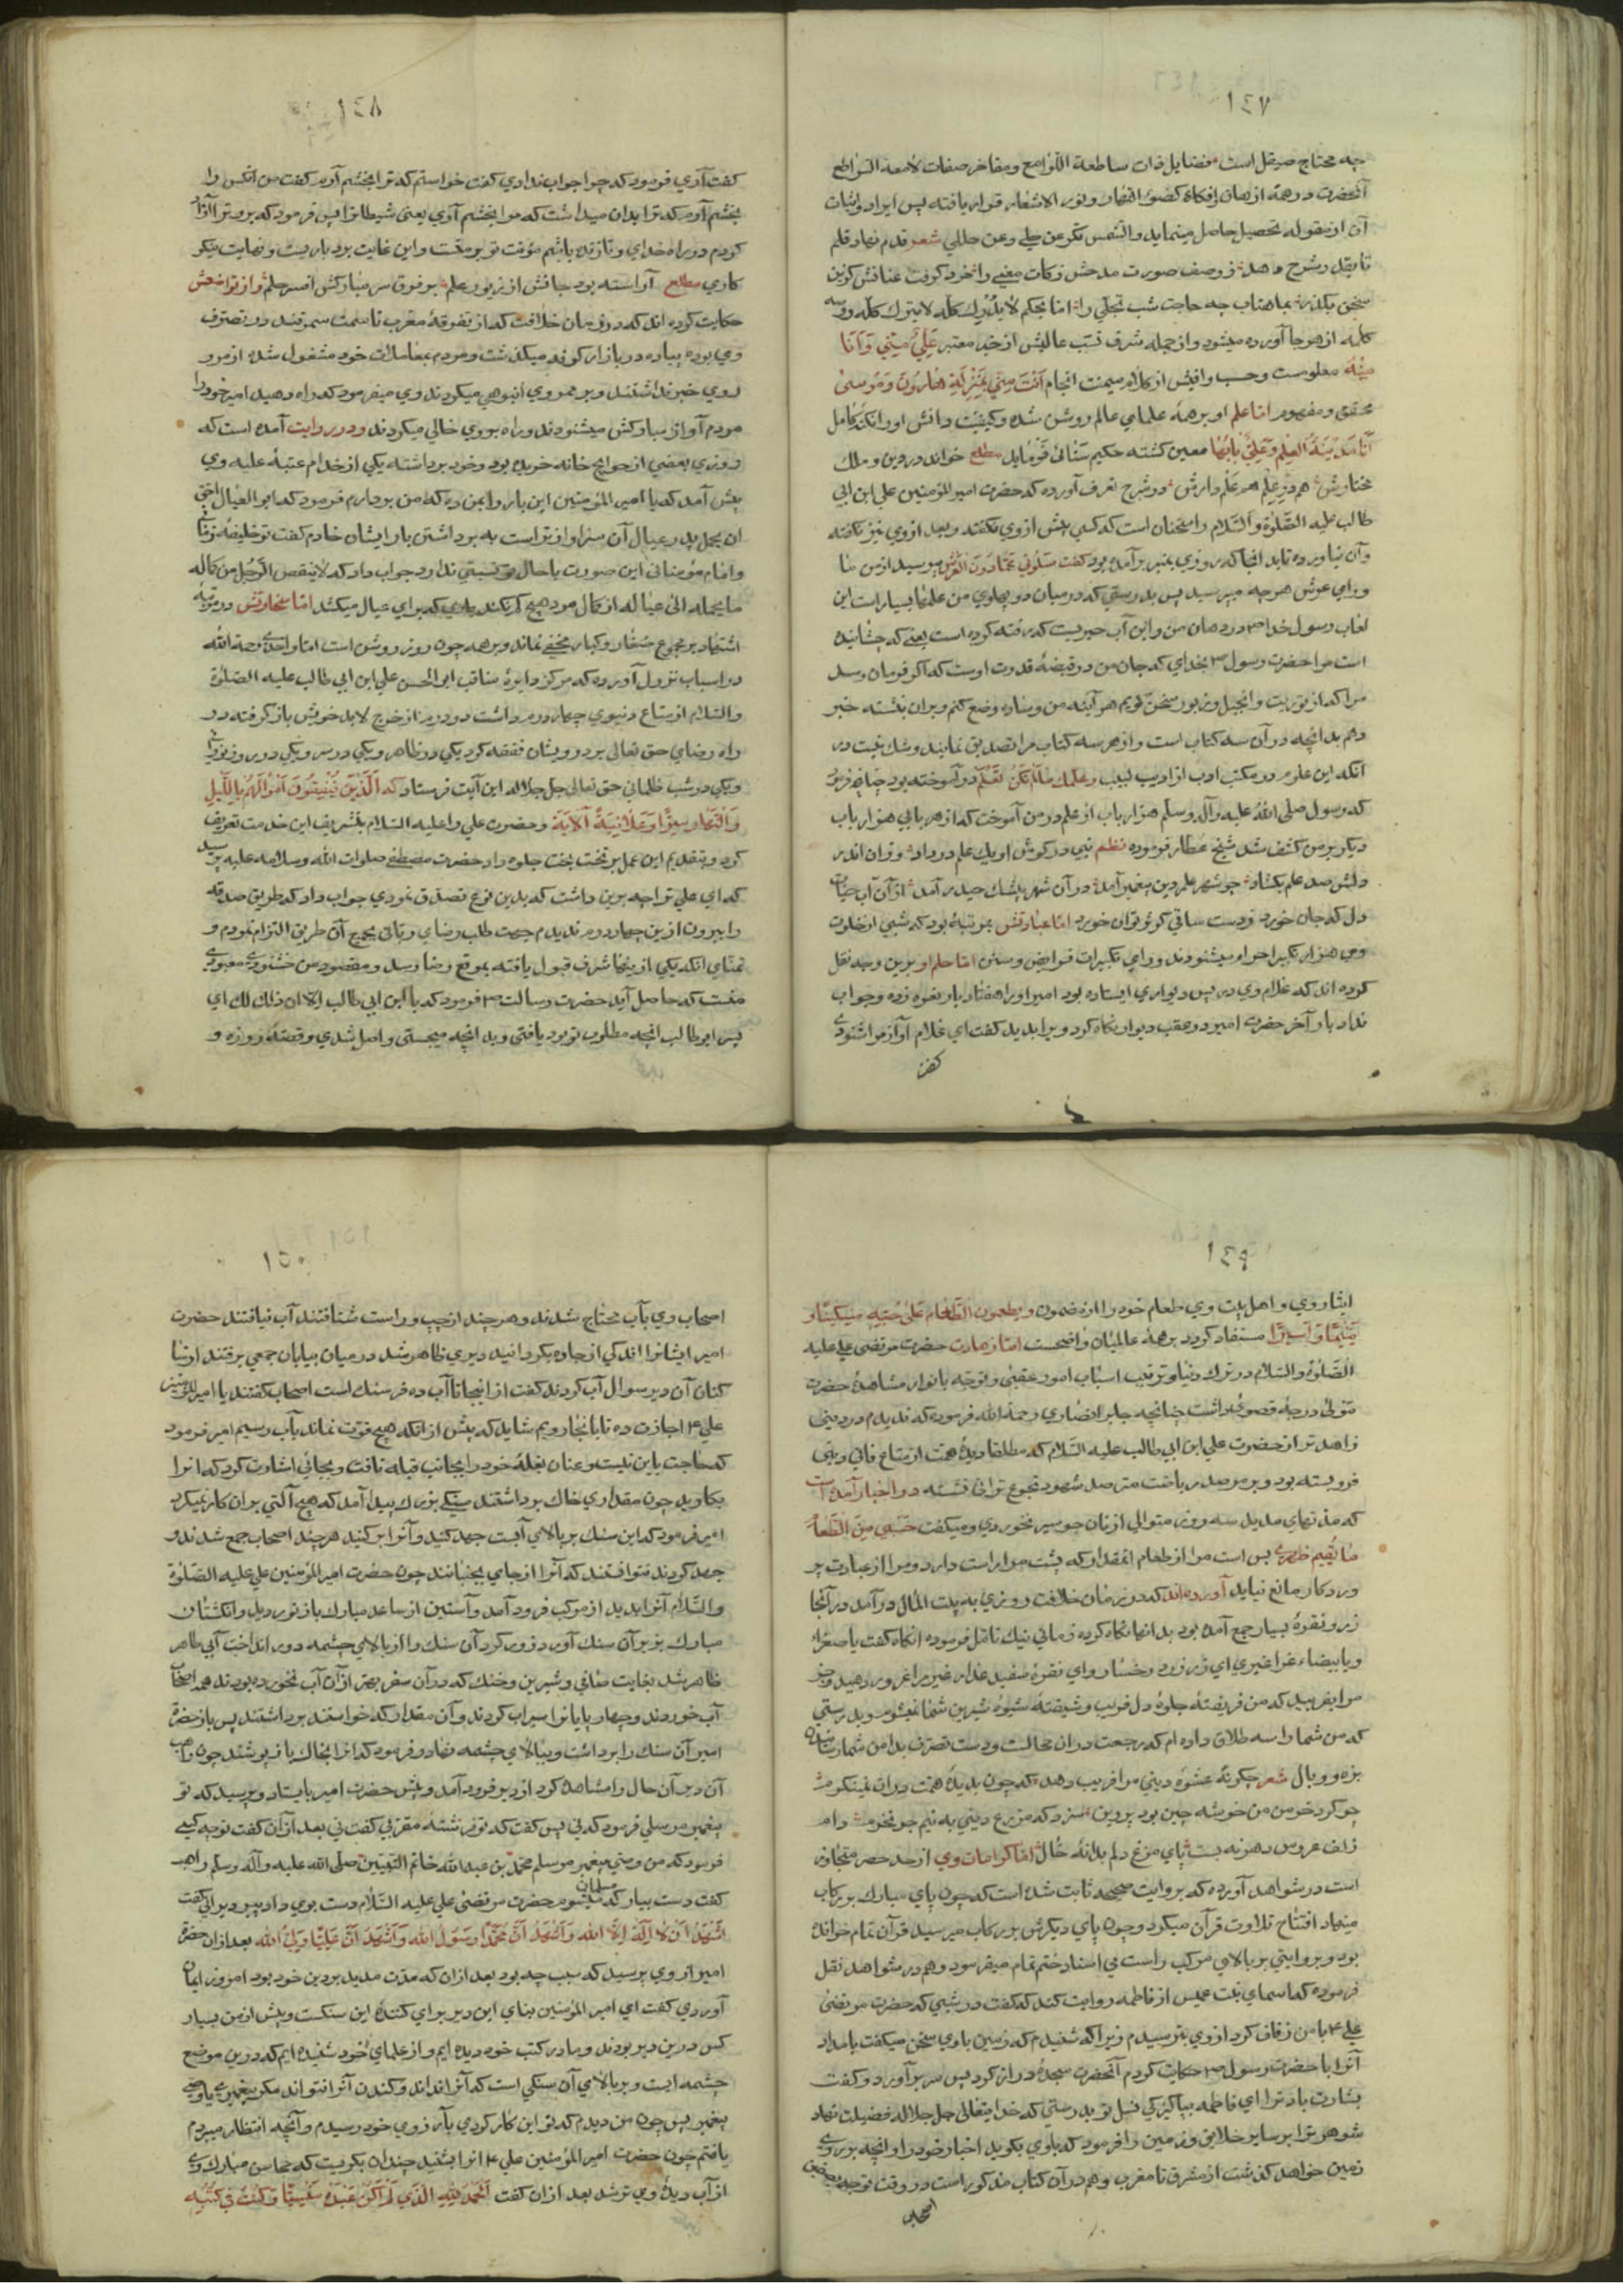 ١٤٧
چه محتاج صیقل است فضایل ذات ساطعة اللوامع ومفاخر صفات لامعة السواطع
آنحضرت در همهٔ اذهان وافکار کضوء النهار ونور الاشتهار قرار یافته پس ایراد واثبات
آن از مقوله تحصیل حاصل مینماید والشمس تکبر عن حلي وعن حللي شعر قدم نهاد قلم
تا بقل وشرح دهد ز وصف صورت مدحش زکات معنی را خرد کرفت عنانش کزین
سخن بکذر بماهتاب چه حاجت شب تجلی را اما بحکم لا یدرك کله لا یترك کله دوسه
کله از هر جا آورده میشود واز جمله شرف نسب عالیش از خبر معتبر عَلِيٌّ مِنّي وَأَنَا
مِنْهُ معلومست وحسب وافیش از کلام میمنت انجام أَنْتَ مِنّي بِمَنْزِلَةِ هَارُونَ وَمُوسىٰ
محقق ومفهوم اما علم او بر همهٔ علمای عالم روشن شده وکیفیت دانش او را نکته کامل
أَنَا مَدِينَةُ العِلْمِ وَعَلِيٌّ بَابُهَا معین کشته حکیم سنائی فرماید مطلع خواند در دین وملك
مختارش هم در علم هم علم دارش ودر شرح تعرف آورده که حضرت امیر المؤمنین علی ابن ابی
طالب علیه الصلوة والسلام را سخنان است که کسی پیش از وی نکفته وبعد از وی نیز نکفته
وآن نیاورده تا بد انجا که روزی بمنبر برآمده بود کفت سَلُونِي عَمَّا دُونَ العَرْشِ بپرسید از من ما
ورای عرش هرچه میپرسید پس بدرستی که در میان دو پهلوی من علمها بسیار است این
لعاب رسول خدا ص در دهان من واین آب چیزیست که رفته کرده است یعنی که چشانیده
است مرا حضرت رسول ص بخدای که جان من در قبضهٔ قدرت اوست که اکر فرمان رسد
مرا که از توریت وانجیل وزبور سخن کویم هر آینه من وساده وضع کنم وبران نشسته خبر
دهم بدانچه در آن سه کتاب است واز هر سه کتاب مرا تصدیق نمایند وشك نیست در
آنکه این علوم در مکتب ادب از ادیب لبیب وعلّمك ما لَمْ تَكُنْ تَعْلَم در آموخته بود چنانچه فرمود
که رسول صلی اللهُ علیه وآله وسلم هزار باب از علم در من آموخت که از هر بابی هزار باب
دیکر بر من کشف شد شیخ عطار فرموده نظم نبی در کوش او یك علم در داد وزان اندر
دلش صد علم بکشاد چو شهر علم دین پیغمبر آمد در آن شهر بیشك حیدر آمد از آن آب حیات
دل که جان خورد ز دست ساقی کوثر توان خورد اما عبادتش بمرتبهٔ بود که شبی از خلوت
وی هزار تکبیر احرام میشنودند ورای تکبیرات فرایض وسنن اما حلم او برین وجه نقل
کرده اند که غلام وی در پس دیواری ایستاده بود امیر او را هفتاد بار نعره زده وجواب
نداد بار آخر حضرت امیر در عقب دیوار نکاه کرد ویرا بدید کفت ای غلام آواز مرا شنودی
کفت
١٤٨
کفت آری فرمود که چرا جواب ندادی کفت خواستم که ترا بخشم آورم کفت من آنکس را
بخشم آورم که ترا بدان میداشت که مرا بخشم آری یعنی شیطان را پس فرمود که برو ترا آزاد
کردم در راه خدای وتا زنده باشم مؤنت تو بر منست واین غایت بردباریست ونهایت نیکو
کاری مطلع آراسته بود جانش از زیور علم بر فرق سر مبارکش افسر حلم واز تواضعش
حکایت کرده اند که در زمان خلافت که از تفرقهٔ مغرب تا سمت سمرقند در تصرف
وی بوده پیاده در بازار کوفه میکذشت ومردم بمعاملات خود مشغول شده از مرور
وی خبر نداشتند وبر ممر وی انبوهی میکردند وی میفرمود که راه دهید امیر خود را
مردم آواز مبارکش میشنودند وراه بر وی خالی میکردند ودر روایت آمده است که
روزی بعضی از حوایج خانه خریده بود وخود برداشته یکی از خدام عتبهٔ علیه وی
پیش آمد که یا امیر المؤمنین این بار را بمن ده که من بردارم فرمود که ابو العیال احق
ان یحمل پدر عیال آن سزاوارتر است به برداشتن بار ایشان خادم کفت تو خلیفهٔ زمانی
وامام مؤمنانی این صورت با حال تو نسبتی ندارد جواب داد که لا ینقص الرجل من کماله
ما یحمله الی عیاله از کمال مرد هیچ کم نکند باری که برای عیال میکشد اما سخاوتش در مرتبهٔ
اشتهار بر مجموع صغار وکبار مخفی نماند وبر همه چون روز روشن است اما واحدی رحمة الله
در اسباب نزول آورده که مرکز دایرهٔ مناقب ابو الحسن علی ابن ابی طالب علیه الصلوة
والسلام از متاع دنیوی چهار درم داشت در درم از خرج لابد خویش باز کرفته در
راه رضای حق تعالی بر درویشان نفقه کرد یکی در ظاهر ویکی در سر ویکی در روز نورانی
ویکی در شب ظلمانی حق تعالی جل جلاله این آیت فرستاد که اَلَّذِينَ يُنْفِقُونَ أَمْوَالَهُمْ بِاللَّيْلِ
وَالنَّهَارِ سِرًّا وَعَلَانِيَةً اَلآيَة وحضرت علی را علیه السلام بتشریف این خدمت تعریف
کرد وبتقدیم این عمل بر تخت بخت جلوه داد حضرت مصطفی صلوات الله وسلامه علیه پرسید
که ای علی ترا چه برین داشت که بدین نوع تصدق نمودی جواب داد که طریق صدقه
را بیرون ازین چهار درم ندیدم جهت طلب رضای ربانی بجمیع آن طریق التزام نمودم و
تمنای آنکه یکی ازینها شرف قبول یافته بموقع رضا رسد ومقصود من خشنودی معبود
منست که حاصل آید حضرت رسالت ص فرمود که یا ابن ابی طالب الا ان ذلك لك ای
پسر ابو طالب انچه مطلوب تو بود یافتی وبد انچه میجستی واصل شدی وقصهٔ روزه و
١٤٩
ایثار وی واهل بیت وی طعام خود را از مضمون ويطعمون الطَّعَامَ عَلىٰ حُبِّهِ مِسْكِينًا وَ
يَتِيمًا وَأَسِيرًا مستفاد کردد بر همهٔ عالمیان واضحست اما زهادت حضرت مرتضی علی علیه
الصلوة والسلام در ترك دنیا وترتیب اسباب امور عقبی وتوجه بانوار مشاهدهٔ حضرت
مولی درجهٔ قصوی داشت چنانچه جابر انصاری رحمة الله فرموده که ندیدم در دنیی
زاهدتر از حضرت علی ابن ابی طالب علیه السلام که مطلقا دیدهٔ همت از متاع فانی دنیی
فروبسته بود وبر مرصد ریاضت مترصد شهود تجوع ترانی نشسته در اخبار آمده است
که مدتهای مدید سه روز متوالی از نان جو سیر نخوردی ومیکفت حَسْبِي مِنَ الطَّعَامِ
مَا يُقِيمُ ظَهْرِي بس است مرا از طعام آنمقدار که پشت مرا راست دارد ومرا از عبادت پر
ورد کار مانع نیاید آورده اند که در زمان خلافت روزی به بیت المال در آمد در آنجا
زر ونقرهٔ بسیار جمع آمده بود بدانها نکاه کرده زمانی نیك تامل فرموده انکاه کفت یا صفراء
ویا بیضاء غرا غیری ای زر زرد رخسار وای نقرهٔ سفید عذار غیر مرا غرور دهید وجز
مرا بفریبید که من فریفتهٔ جلوهٔ دل فریب وشیفتهٔ شیوهٔ شیرین شما نمیشوم وبدرستی
که من شما را سه طلاق داده ام که رجعت در ان محالست ودست تصرف بدامن شما رسانیدن
بزه ووبال شعر چکونهٔ عشوهٔ دنیی مرا فریب دهد که چون بدیدهٔ همت در ان نمینکرم
چو کرد خرمن من خوشه چین بود پروین سزد که مزرع دنیی به نیم جو نخرم دام
زلف عروس دهر نه بست پای مرغ دلم بدانهٔ خال اما کرامات وی از حد حصر متجاوز
است در شواهد آورده که بروایت صحیحه ثابت شده است که چون پای مبارك بر رکاب
مینهاد افتتاح تلاوت قرآن میکرد وچون پای دیکرش بر رکاب میرسید قرآن تمام خوانده
بود وبروایتی بر بالای مرکب راست می استاد ختم تمام میفرمود وهم در شواهد نقل
فرموده که اسمای بنت عمیس از فاطمه روایت کند که کفت در شبی که حضرت مرتضی
علی ع با من زفاف کرد از وی بترسیدم زیرا که شنیدم که زمین با وی سخن میکفت بامداد
آنرا با حضرت رسول ص حکایت کردم آنحضرت سجدهٔ دراز کرد پس سر برآورد وکفت
بشارت باد ترا ای فاطمه بپاکیزکی نسل تو بدرستی که خدایتعالی جل جلاله فضیلت نهاد
شوهر ترا بر سایر خلایق وزمین را فرمود که با وی بکوید اخبار خود را وانچه بر روی
زمین خواهد کذشت از مشرق تا مغرب وهم در آن کتاب مذکور است در وقت توجه بصفین
اصحاب
١٥٠
اصحاب وی بآب محتاج شدند وهر چند از چپ وراست شتافتند آب نیافتند حضرت
امیر ایشانرا اندکی از جاده بکردانید دیری ظاهر شد در میان بیابان جمعی برفتند از سا
کنان آن دیر سوال آب کردند کفت از اینجا تا آب ده فرسنك است اصحاب کفتند یا امیر المؤمنین
علی ع اجازت ده تا بانجا رویم شاید که پیش از آنکه هیچ قوت نماند بآب رسیم امیر فرمود
که حاجت باین نیست وعنان بغلهٔ خود را بجانب قبله تافت وبجائی اشارت کرد که انرا
بکاوید چون مقداری خاك برداشتند سنکی بزرك پیدا آمد که هیچ آلتی بر ان کار نمیکرد
امیر فرمود که این سنك بر بالای آبست جهد کنید وآنرا بر کنید هر چند اصحاب جمع شدند و
جهد کردند نتوانستند که آنرا از جای بجنبانند چون حضرت امیر المؤمنین علی علیه الصلوة
والسلام آنرا بدید از مرکب فرود آمد وآستین از ساعد مبارك باز نوردید وانکشتان
مبارك بزیر آن سنك آورد وزور کرد آن سنك را از بالای چشمه دور انداخت آبی طاهر
ظاهر شد بغایت صافی وشیرین وخنك که در آن سفر بهتر از آن آب نخورده بودند همه اصحاب
آب خوردند وچهارپایانرا سیراب کردند وآن مقدار که خواستند برداشتند پس باز حضرت
امیر آن سنك را برداشت وببالای چشمه نهاد وفرمود که انرا بخاك باز پوشند چون راهب
آن دیر آن حال را مشاهده کرد از دیر فرود آمد وپیش حضرت امیر بایستاد وپرسید که تو
پیغمبر مرسلی فرمود که نی پس کفت که تو فرشته مقربی کفت نی بعد از آن کفت تو چه کسی
فرمود که من وصی پیغمبر مرسلم محمد بن عبد الله خاتم النبیین صلی الله علیه وآله وسلم راهب
کفت دست بیار که مسلمان شوم حضرت مرتضی علی علیه السلام دست بوی داد پیر دیرانی کفت
اَشْهَدُ أَنْ لَا اِلٰهَ اِلَّا الله وَأَشْهَدُ أَنَّ مُحَمَّدًا رَسُولُ الله وَأَشْهَدُ أَنَّ عَلِيًّا وَلِيُّ الله بعد از ان حضرت
امیر از وی پرسید که سبب چه بود بعد ازان که مدت مدید بر دین خود بود امروز ایمان
آوردی کفت ای امیر المؤمنین بنای این دیر برای کنندهٔ این سنکست وپیش از من بسیار
کس درین دیر بودند وما در کتب خود دیده ایم واز علمای خود شنیده ایم که درین موضع
چشمه ایست وبر بالای آن سنکی است که آنرا نداند وکندن آنرا نتواند مکر پیغمبری یا وصی
پیغمبر پس چون من دیدم که تو این کار کردی بآرزوی خود رسیدم وآنچه انتظار میبردم
یافتم چون حضرت امیر المؤمنین علی ع انرا بشنید چندان بکریست که محاسن مبارك وی
از آب دیدهٔ وی تر شد بعد ازان کفت اَلْحَمْدُ لِلّٰهِ الَّذِي لَمْ أَكُنْ عِنْدَهُ مَنْسِيًّا وَكُنْتُ فِي كُتُبِهِ